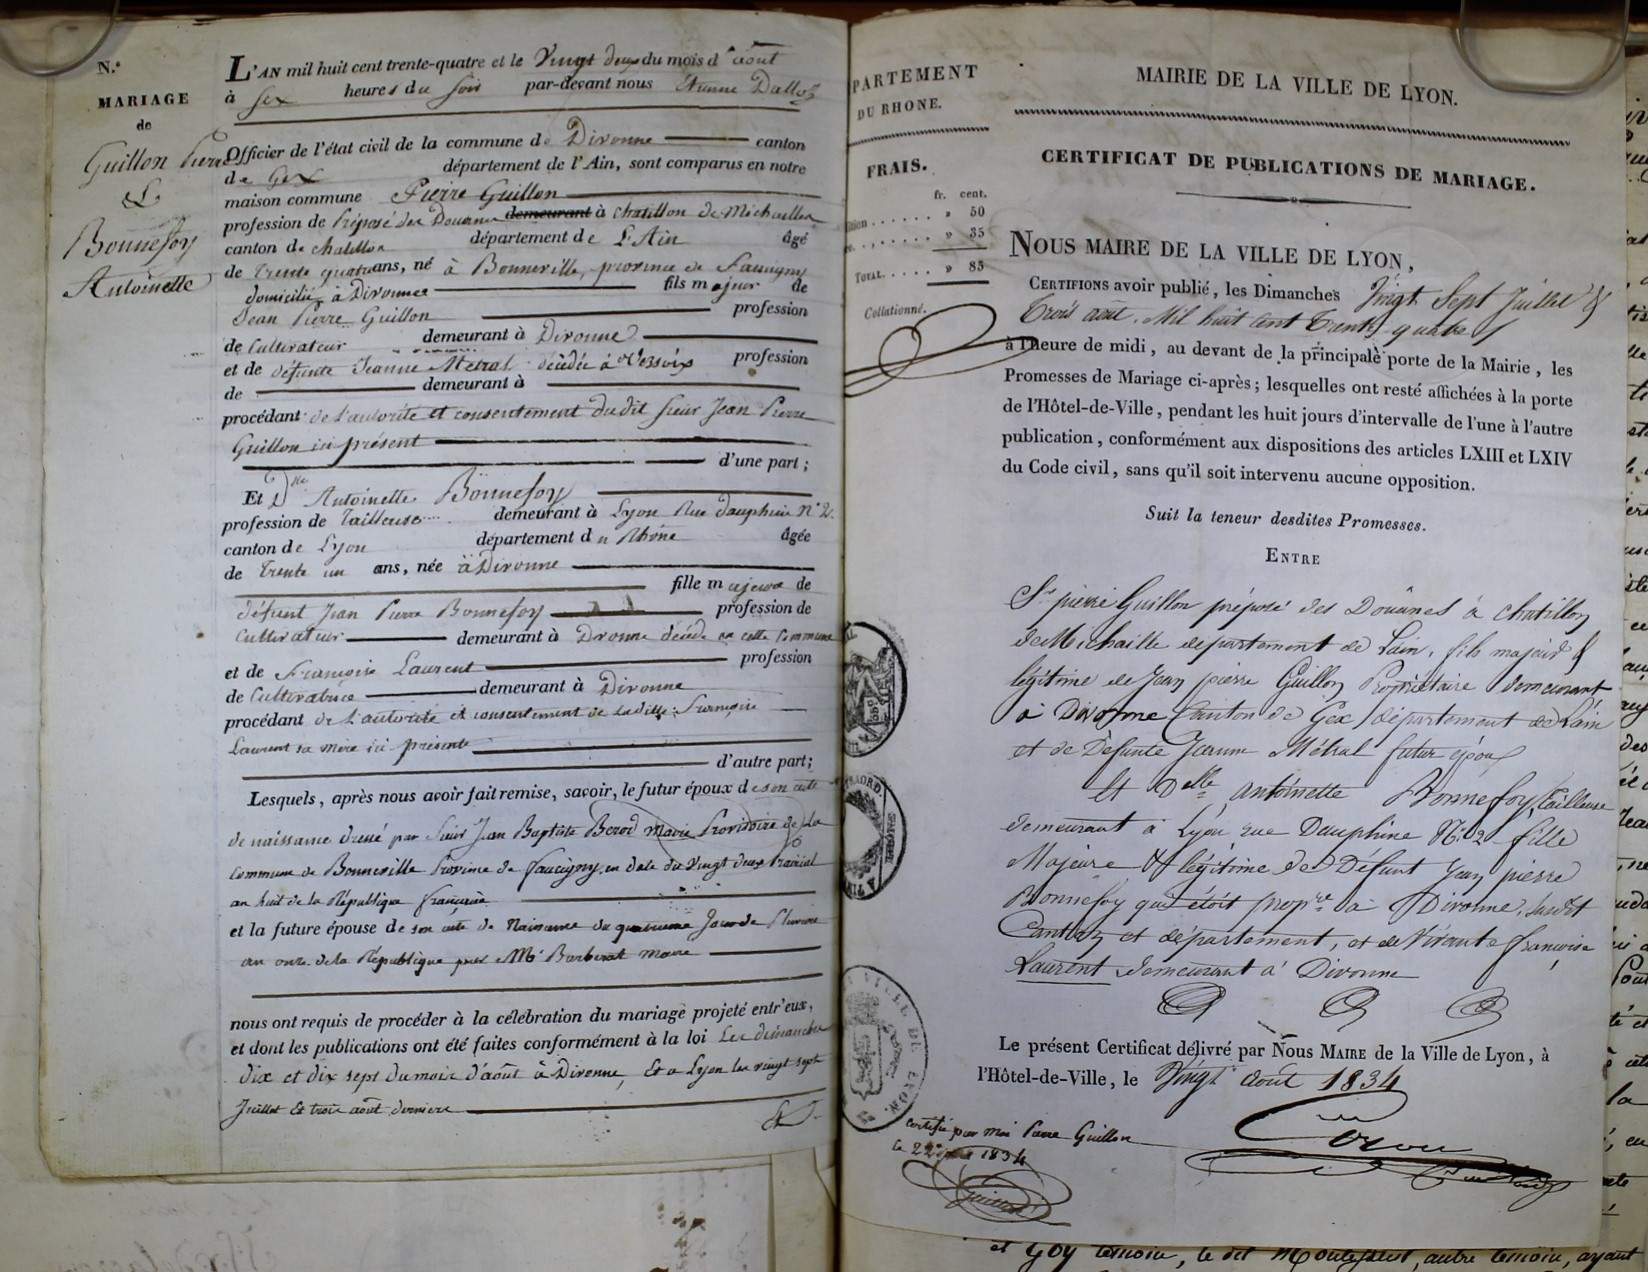 N.°
MARIAGE
de
Guillon Pierre
&
Bonnefoy
Antoinette
L'AN mil huit cent trente-quatre et le Vingt deux du mois d'août
à six heures du soir par-devant nous Etienne Dalloz
Officier de l'état civil de la commune de Divonne canton
de Gex département de l'Ain, sont comparus en notre
maison commune Pierre Guillon
profession de Préposé des Douanes demeurant à Chatillon de Michaille
canton de Chatillon département de L'Ain âgé
de trente quatre ans, né à Bonneville, province de Faucigny
domicilié à Divonne fils majeur de
Jean Pierre Guillon profession
de Cultivateur demeurant à Divonne
et de défunte Jeanne Métral décédée à Versoix profession
de demeurant à
procédant de l'autorité et consentement dudit sieur Jean Pierre
Guillon ici présent
d'une part ;
Et Dlle Antoinette Bonnefoy
profession de Tailleuse demeurant à Lyon Rue dauphine N° 2.
canton de Lyon département du Rhône âgée
de trente un ans, née à Divonne
fille majeure de
défunt Jean Pierre Bonnefoy profession de
Cultivateur demeurant à Divonne décédé en cette Commune
et de Françoise Laurent profession
de Cultivatrice demeurant à Divonne
procédant de l'autorité et consentement de ladite Françoise
Laurent sa mère ici présente
d'autre part ;
Lesquels, après nous avoir fait remise, savoir, le futur époux de son acte
de naissance dressé par Sieur Jean Baptiste Berod Maire Provisoire de la
Commune de Bonneville Province de Faucigny en date du Vingt deux Prairial
an huit de la République française
et la future épouse de son acte de Naissance du quatrieme Jour de Pluviose
an onze de la République par Mr Barberat maire
nous ont requis de procéder à la célébration du mariage projeté entr'eux,
et dont les publications ont été faites conformément à la loi Les dimanches
dix et dix sept du mois d'août à Divonne, Et a Lyon les vingt sept
Juillet Et trois août derniers
PARTEMENT
DU RHONE.
FRAIS.
fr. cent.
» 50
» 35
TOTAL » 85
Collationné.
MAIRIE DE LA VILLE DE LYON.
CERTIFICAT DE PUBLICATIONS DE MARIAGE.
NOUS MAIRE DE LA VILLE DE LYON,
CERTIFIONS avoir publié, les Dimanches Vingt Sept Juillet &
Trois août Mil huit cent Trente quatre
à l'heure de midi, au devant de la principale porte de la Mairie, les
Promesses de Mariage ci-après ; lesquelles ont resté affichées à la porte
de l'Hôtel-de-Ville, pendant les huit jours d'intervalle de l'une à l'autre
publication, conformément aux dispositions des articles LXIII et LXIV
du Code civil, sans qu'il soit intervenu aucune opposition.
Suit la teneur desdites Promesses.
ENTRE
Sr pierre Guillon préposé des Douânes à Chatillon
de Michaille département de l'ain, fils majeur &
légitime de Jean pierre Guillon Propriétaire demeurant
à Divonne Canton de Gex département de l'ain
et de Défunte Jeanne Métral futur époux
Et Delle Antoinette Bonnefoy, Tailleuse
demeurant à Lyon rue Dauphine N° 2 fille
Majeure & légitime de Défunt Jean pierre
Bonnefoy qui étoit propre à Divonne, susdit
Canton et département, et de Vivante françoise
Laurent demeurant à Divonne
Le présent Certificat délivré par Nous MAIRE de la Ville de Lyon, à
l'Hôtel-de-Ville, le Vingt août 1834
certifié par moi Pierre Guillon
le 22 1834
Guillon
et Goy temoin, le dit autre temoin, ayant